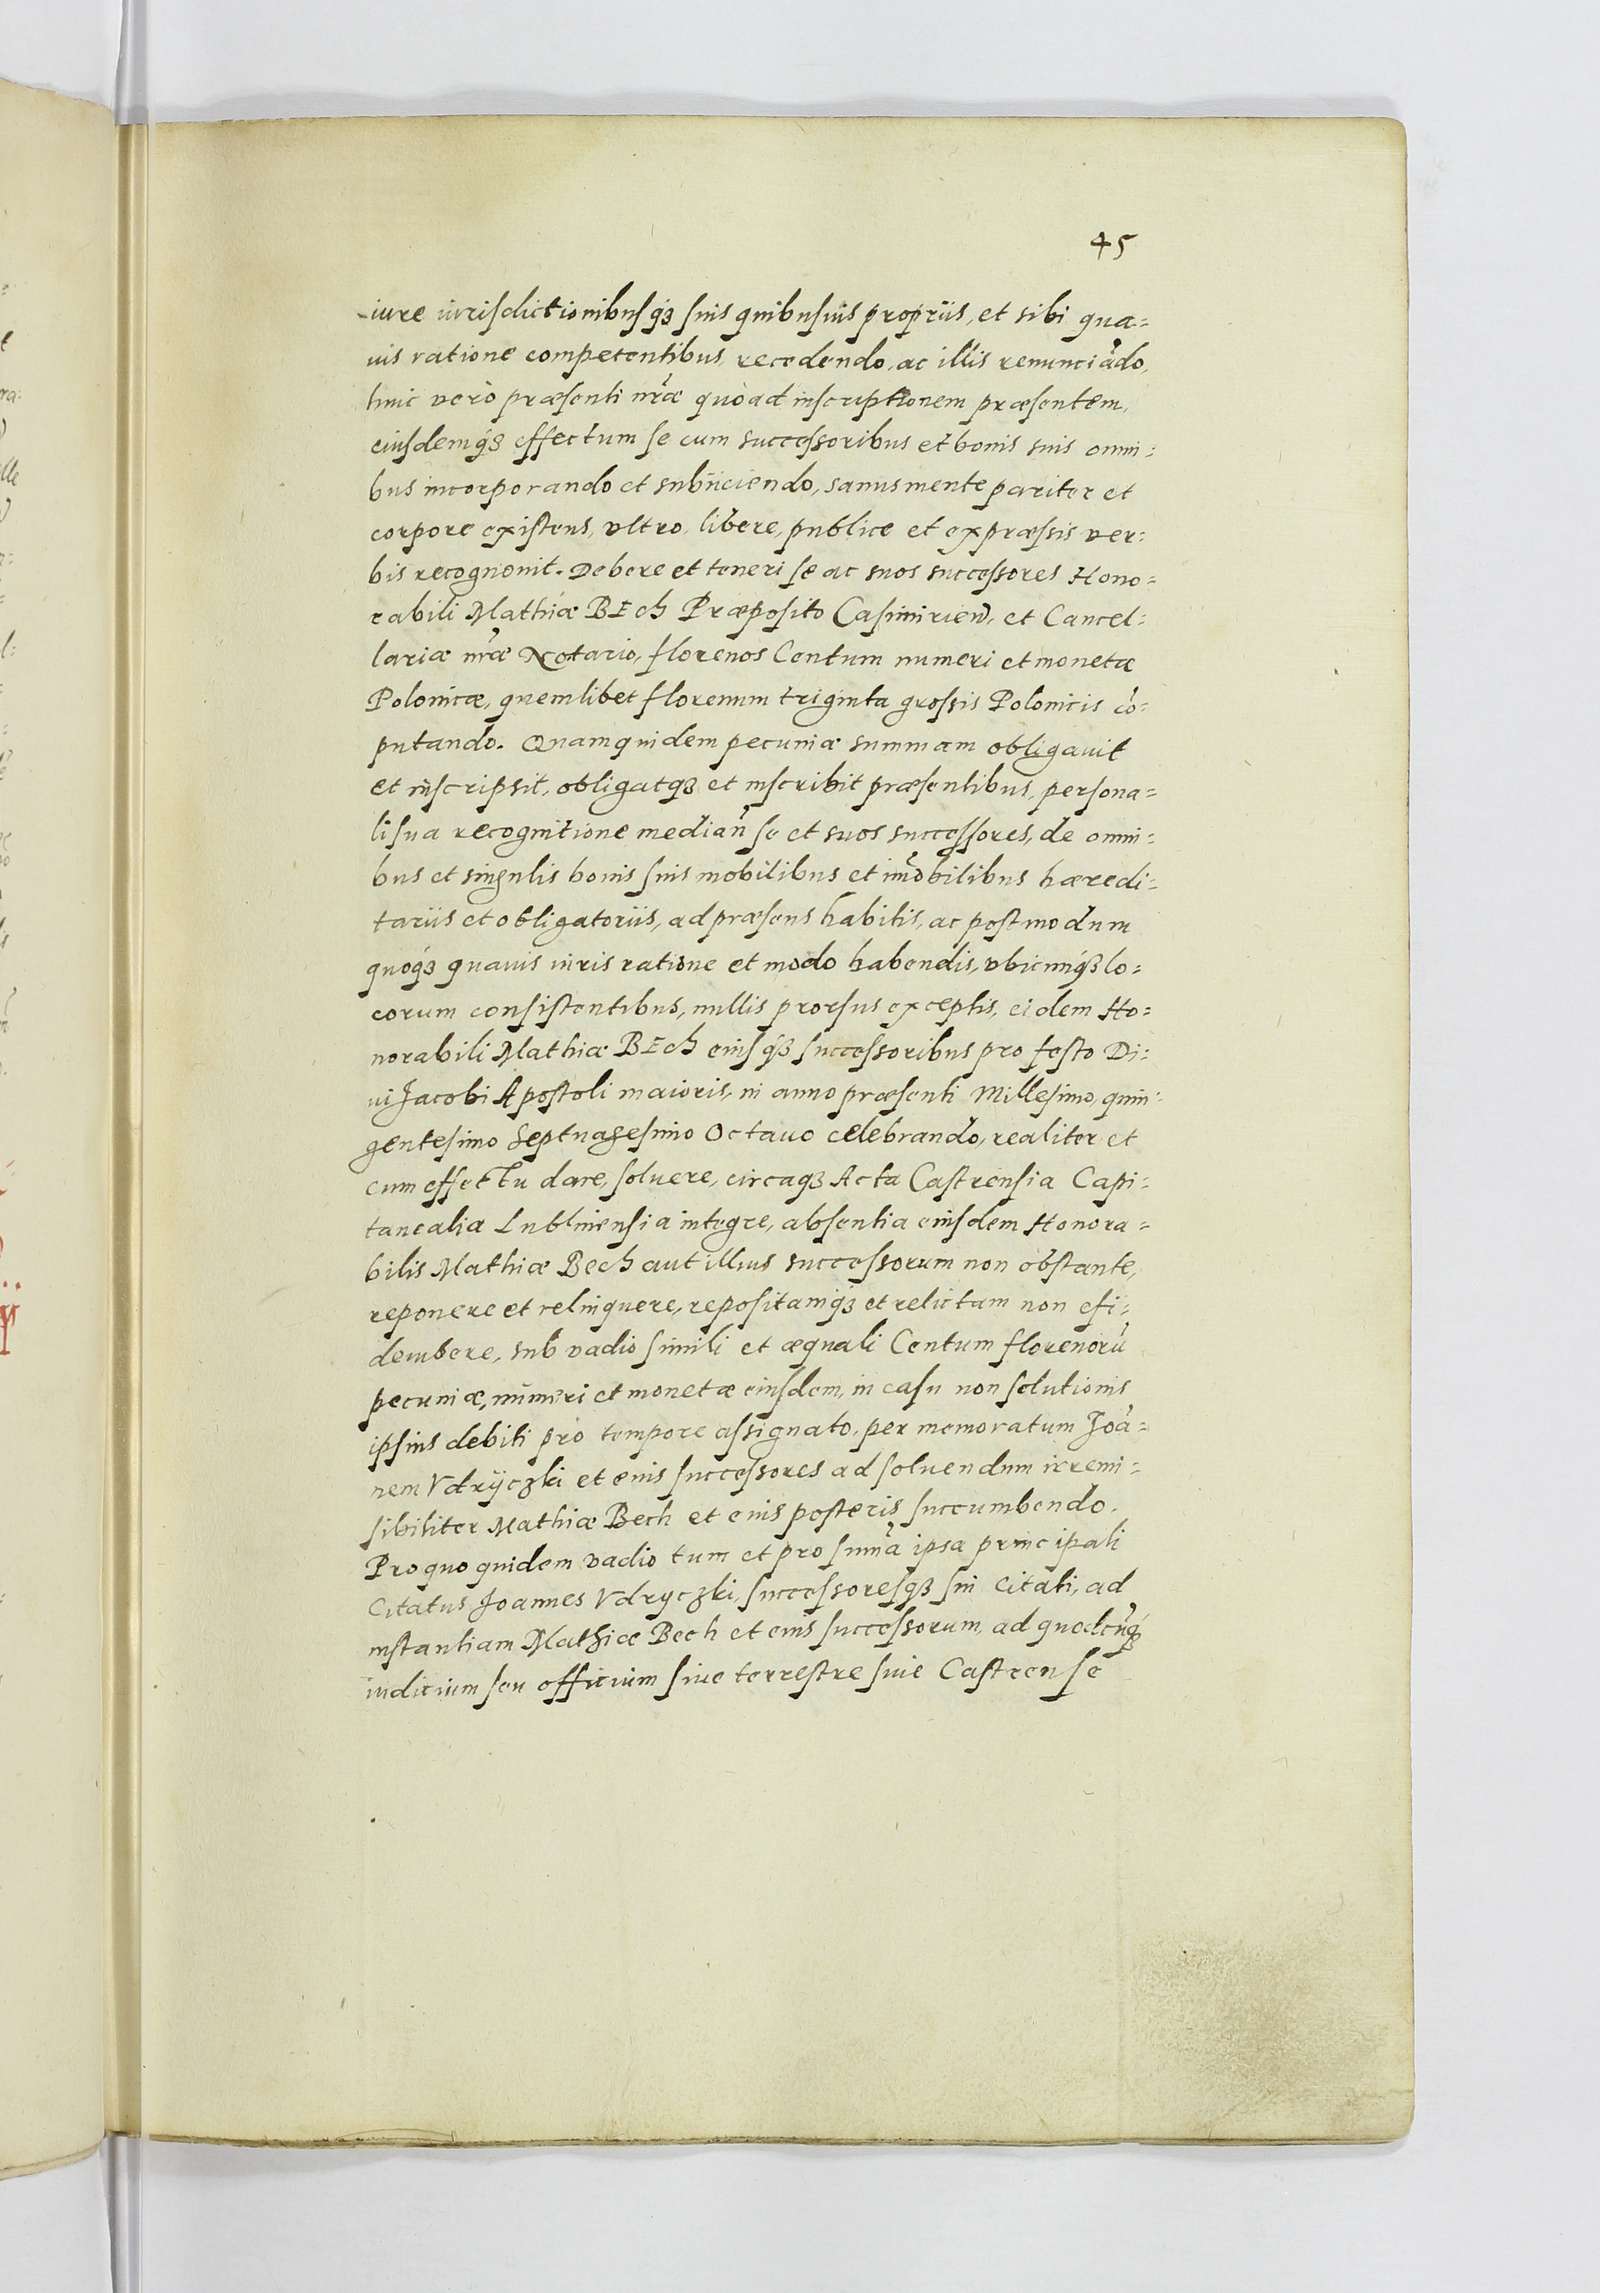 45
iure iurisdictionibusq; suis quibusuis proprijs, et sibi qua=
uis ratione competentibus, recedendo, ac illis renunciãdo,
huic verò præsenti nrãe quòad inscriptionem præsentem,
eiusdemq; effectum se cum successoribus et bonis suis omni=
bus incorporando et subijciendo, sanus mente pariter et
corpore existens, vltro, libere, publice et expræssis ver=
bis recognouit. Debere et teneri se ac suos successores Hono=
rabili Mathiæ BEch Præposito Casimirieñ, et Cancel=
lariæ nrãe Notario, florenos Centum numeri et monetæ
Polonicæ, quemlibet florenum triginta grossis Polonicis cõ=
putando. Quamquidem pecuniæ summam obligauit
et inscripsit, obligatq; et inscribit præsentibus, persona=
li sua recognitione median̄ se et suos successores, de omni=
bus et singulis bonis suis mobilibus et im̃obilibus hæredi=
tarijs et obligatorijs, ad præsens habitis, ac postmodum
quoq; quauis iuris ratione et modo habendis, vbicunq; lo=
corum consistentibus, nullis prorsus exceptis, eidem Ho=
norabili Mathiæ BEch eiusq; successoribus pro festo Di=
ui Jacobi Apostoli maioris, in anno præsenti Millesimo, quin=
gentesimo Septuagesimo Octauo celebrando, realiter et
cum effectu dare, soluere, circaq; Acta Castrensia Capi=
tanealia Lublinensia integre, absentia eiusdem Honora=
bilis Mathiæ Bech aut illius successorum non obstante,
reponere et relinquere, repositamq; et relictam non efi=
dembere, sub vadio simili et æquali Centum florenorũ
pecuniæ, numeri et monetæ eiusdem, in casu non solutionis
ipsius debiti pro tempore assignato, per memoratum Joã=
nem Vdrÿczki et eius successores ad soluendum irremi=
sibiliter Mathiæ Bech et eius posteris succumbendo.
Pro quo quidem vadio tum et pro sum̃a ipsa principali
Citatus Joannes Vdryczki, successoresq; sui Citati, ad
instantiam Mathiæ Bech et eius successorum, ad quodcũq;
iudicium seu officium siue terrestre siue Castrense